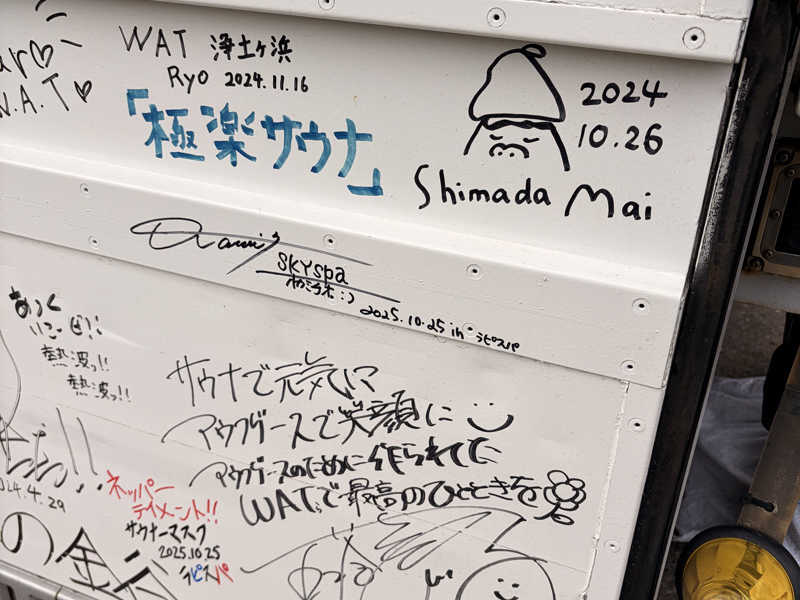 W.A.T♡
WAT 浄土ヶ浜
Ryo 2024.11.16
「極楽サウナ」
2024
10.26
Shimada Mai
SKYSpa
2025.10.25 in ラピスパ
あつく
いこーぜ!!
熱波っ!!
熱波っ!!
サウナで元気に
アウフグースで笑顔に
アウフグースのために作られてた
WATで最高のひとときを
2024.4.29
ネッパー
テイメント!!
サウナーマスク
2025.10.25
ラピスパ
の金谷